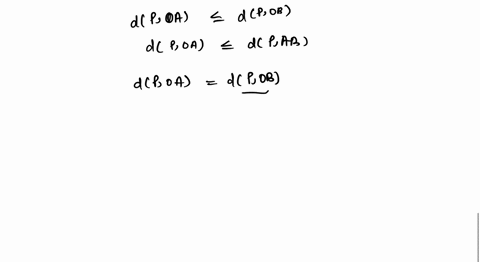 d(P, OA) ≤ d(P, OB)
d(P, OA) ≤ d(P, AB)
d(P, OA) = d(P, OB)